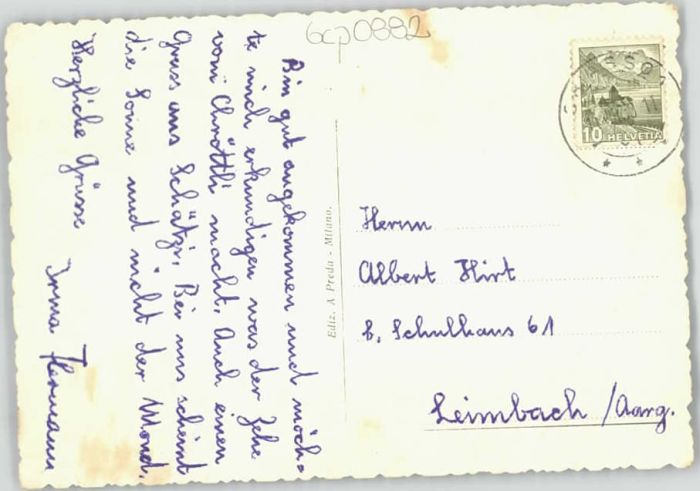 6cp0882
Bin gut angekommen und möch-
te mich erkundigen was der Zehe
vom Chröttli macht. Auch einen
Gruss ans Schätzi. Bei uns scheint
die Sonne und nicht der Mond.
Herzliche Grüsse
Irma Hermann
Ediz. A Preda - Milano.
10 HELVETIA
Herrn
Albert Hirt
b. Schulhaus 61
Leimbach / Aarg.